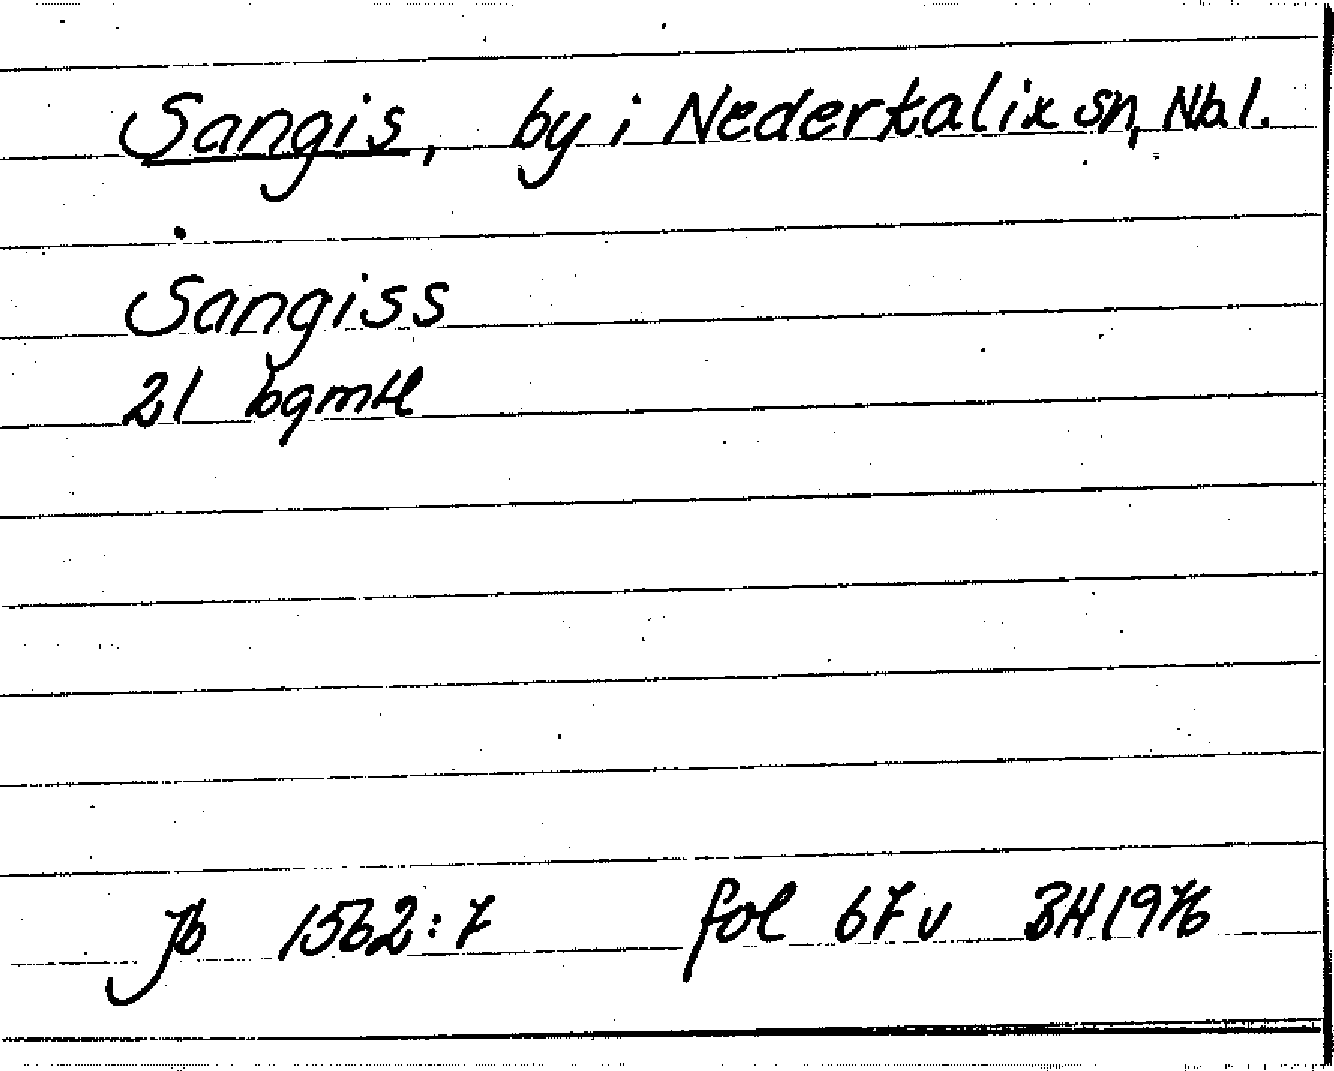 Sangis, by i Nederkalix sn, Nbl.
Sangiss
21 bgmtl
Jb 1562:7 fol 67v BH 1976